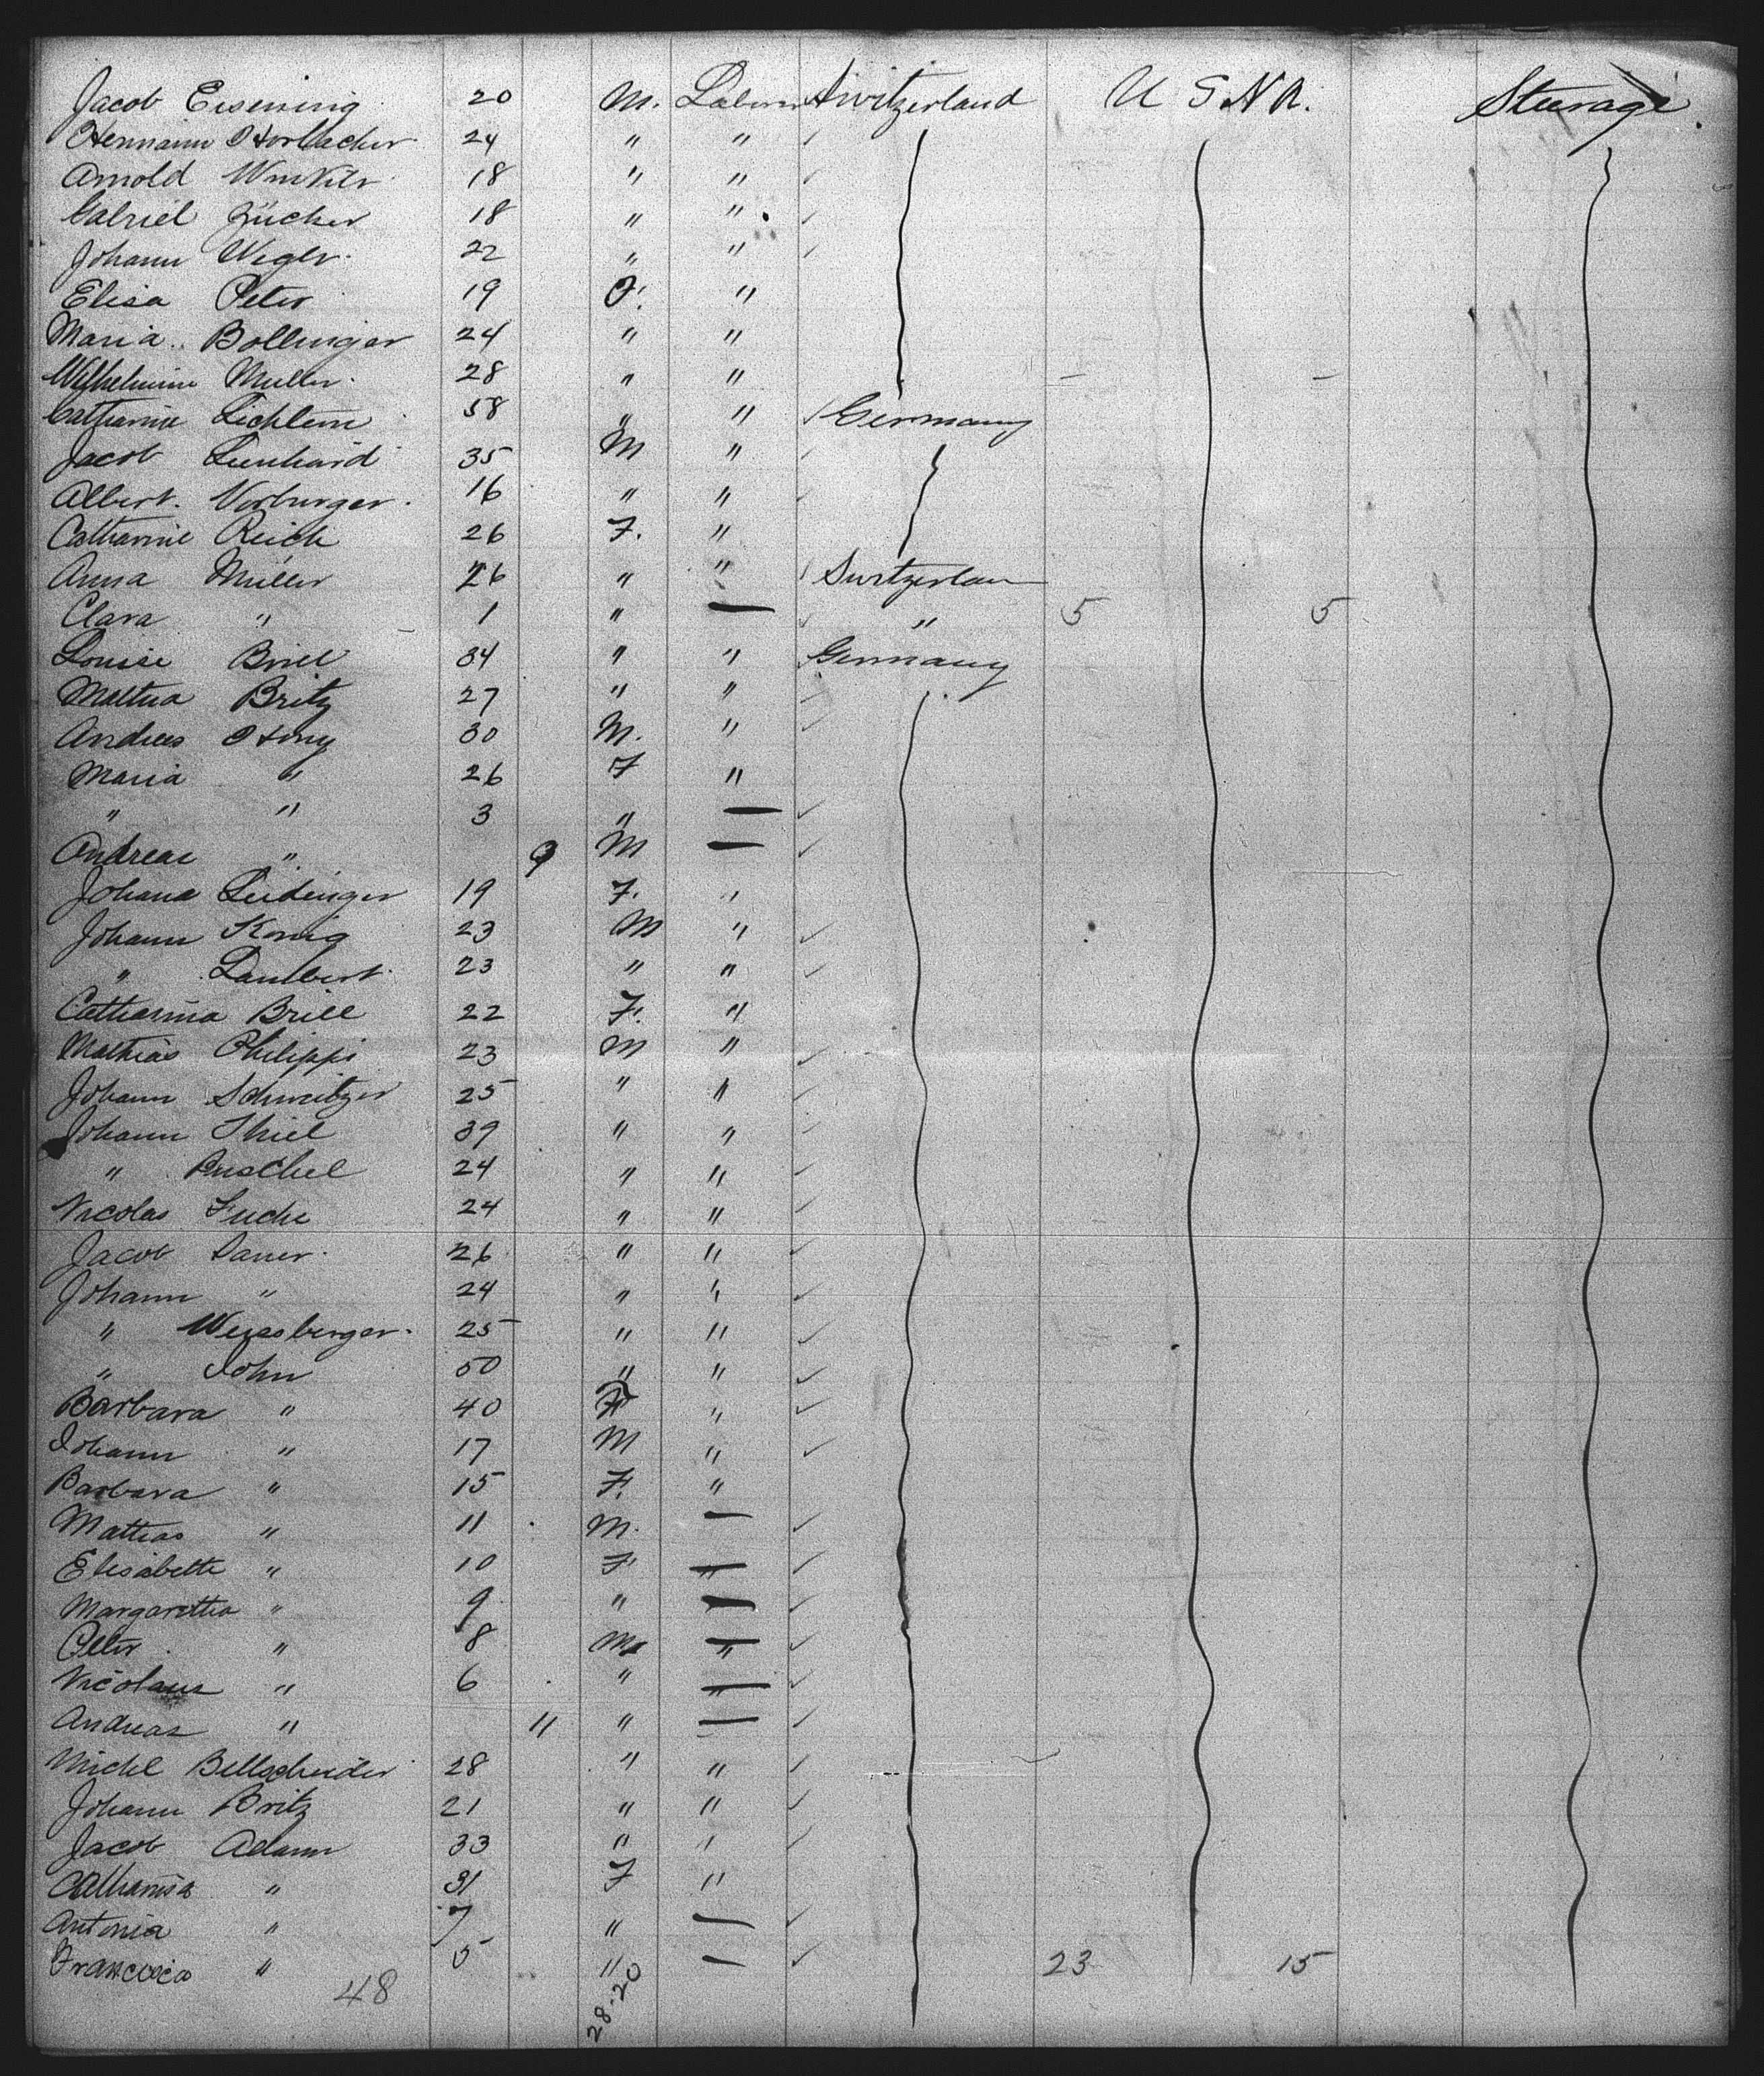 Jacob Eisenring 20 M. Labour Switzerland U S N A. Steerage.
Hermann Horlacher 24 " "
Arnold Winkler 18 " "
Gabriel Zücher 18 " "
Johann Wegler 22 " "
Elisa Peter 19 F. "
Maria Bollinger 24 " "
Wilhelmine Muller 28 " "
Catharine 58 " " Germany
Jacob Lienhard 35 M "
Albert Vorburger 16 " "
Catharine Reich 26 F. "
Anna Müller 26 " " Switzerlan
Clara " 1 " — " 5 5
Louise Brill 34 " " Germany
Britz 27 " "
Andreas 30 M. "
Maria " 26 F "
" " 3 " —
Andreas " 9 M —
Johana Leidinger 19 F. "
Johann Konig 23 M "
" Lambert 23 " "
Catharina Brill 22 F. "
Mathias Philippi 23 M "
Johann Schweitzer 25 " "
Johann Thiel 39 " "
" Puschel 24 " "
Nicolas Fuchs 24 " "
Jacob Sauer 26 " "
Johann " 24 " "
" Weissberger 25 " "
" John 50 " "
Barbara " 40 F "
Johann " 17 M "
Barbara " 15 F. "
Mathias " 11 M. —
Elisabetta " 10 F —
Margaretha " 9 " —
Peter " 8 M —
Nicolaus " 6 " —
Andreas " 11 " —
Michl Bellscheider 28 " "
Johann Britz 21 " "
Jacob Adam 33 " "
Catharina " 31 F "
Antonia " 7 " —
Francisca " 5 " — 23 15
48 28-20